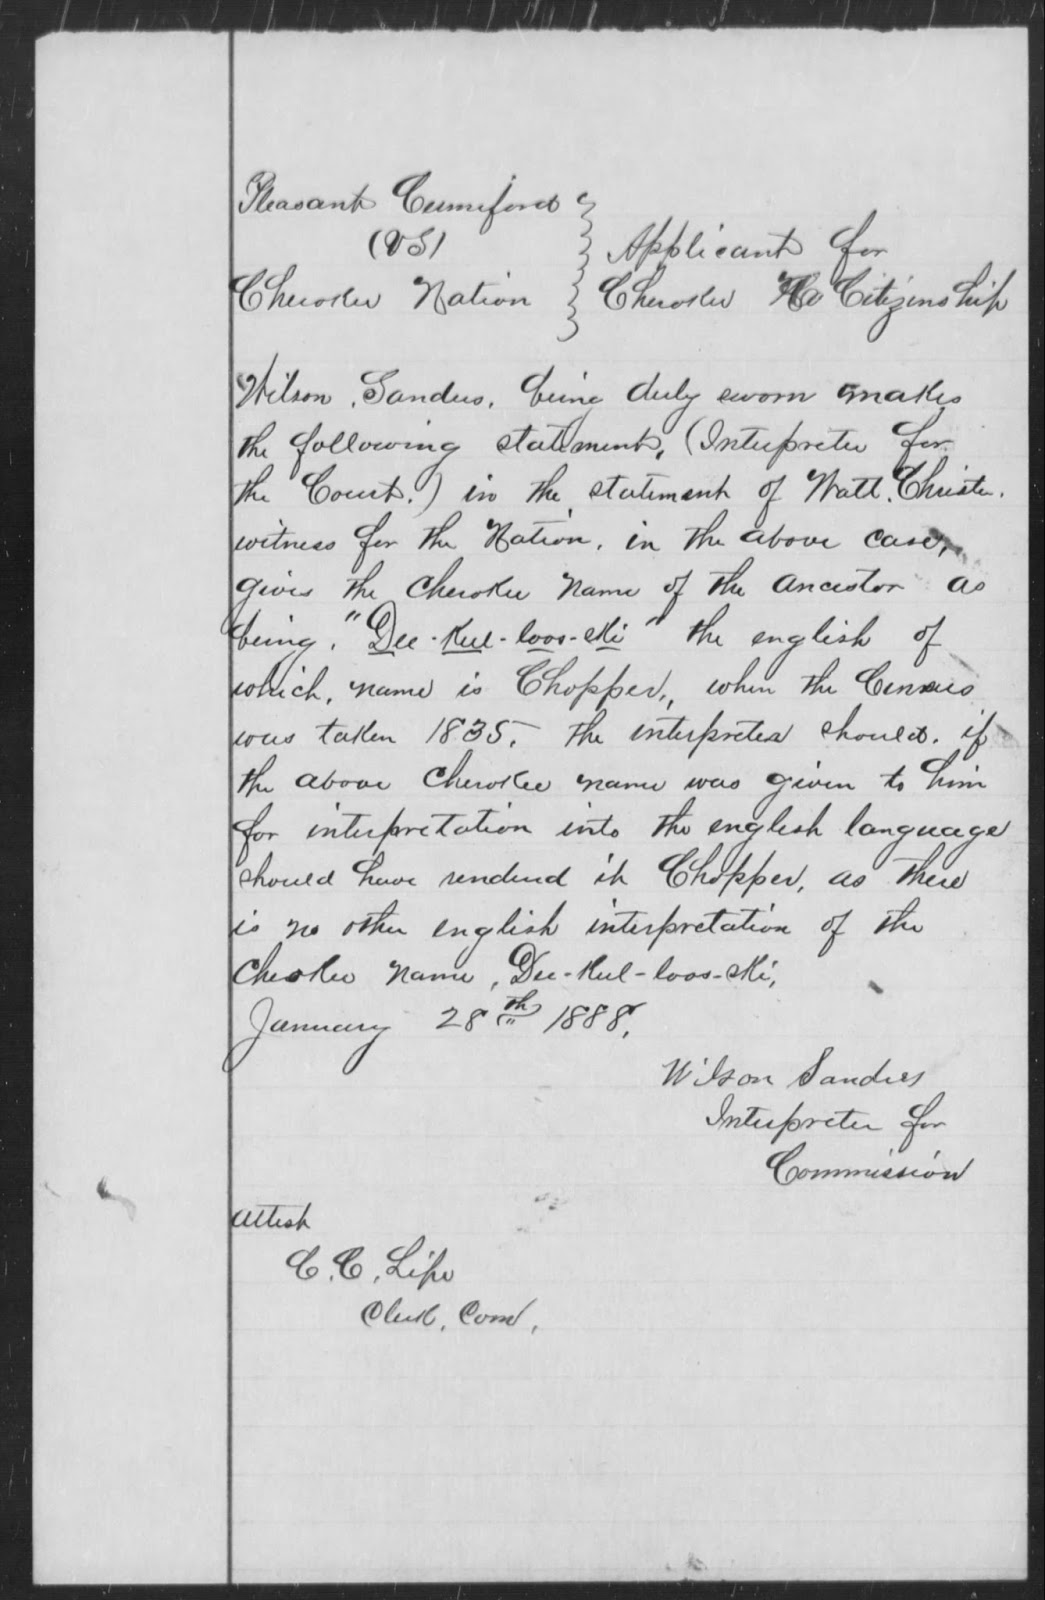 Pleasant Cumiford
(VS)
Cherokee Nation
Applicant for
Cherokee Citizenship
Wilson, Sanders, being duly sworn makes
the following statement, (Interpreter for
the Court.) in the statement of Watt. Christie.
witness for the Nation, in the above case,
gives the Cherokee Name of the Ancestor as
being, "Dee-Kul-loos-ski" the english of
which, name is Chopper,, when the Census
was taken 1835, the interpreter should, if
the above Cherokee name was given to him
for interpretation into the english language
should have rendered it Chopper, as there
is no other english interpretation of the
Cherokee Name, Dee-Kul-loos-ski,
January 28th 1888,
Wilson Sanders
Interpreter for
Commission
Attest
C. C. Lipe
Clerk, Com,